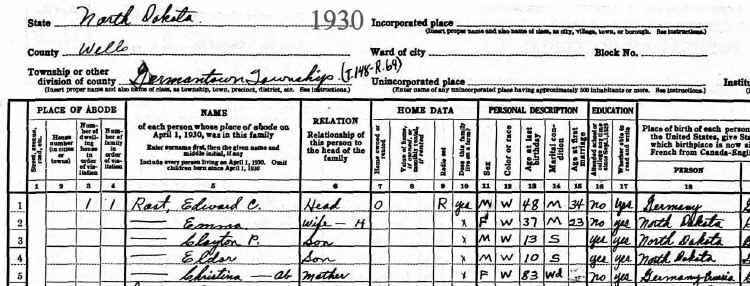 State North Dakota 1930 Incorporated place
(Insert proper name and also name of class, as city, village, town, or borough. See instructions.)
County Wells Ward of city Block No.
Township or other
division of county Germantown Township (T.148-R.69) Unincorporated place
(Insert proper name and also name of class, as township, town, precinct, district, etc. See instructions.) (Enter name of any unincorporated place having approximately 500 inhabitants or more. See instructions.)
PLACE OF ABODE NAME RELATION HOME DATA PERSONAL DESCRIPTION EDUCATION
of each person whose place of abode on April 1, 1930, was in this family
Enter surname first, then the given name and middle initial, if any
Include every person living on April 1, 1930. Omit children born since April 1, 1930
Relationship of this person to the head of the family
House number (in cities or towns)
Number of dwelling house in order of visitation
Number of family in order of visitation
Home owned or rented
Value of home, if owned, or monthly rental, if rented
Radio set
Does this family live on a farm?
Sex
Color or race
Age at last birthday
Marital condition
Age at first marriage
Attended school or college any time since Sept. 1, 1929
Whether able to read and write
Place of birth of each person
the United States, give St
which birthplace is now si
French from Canada-Engli
PERSON
1 2 3 4 5 6 7 8 9 10 11 12 13 14 15 16 17 18
1 1 1 Rott, Edward C. Head O R yes M W 48 M 34 no yes Germany
2 Emma Wife - H x F W 37 M 23 no yes North Dakota
3 Clayton P. Son x M W 13 S yes yes North Dakota
4 Eldor Son x M W 10 S yes yes North Dakota
5 Christina - ab Mother x F W 83 Wd no yes Germany